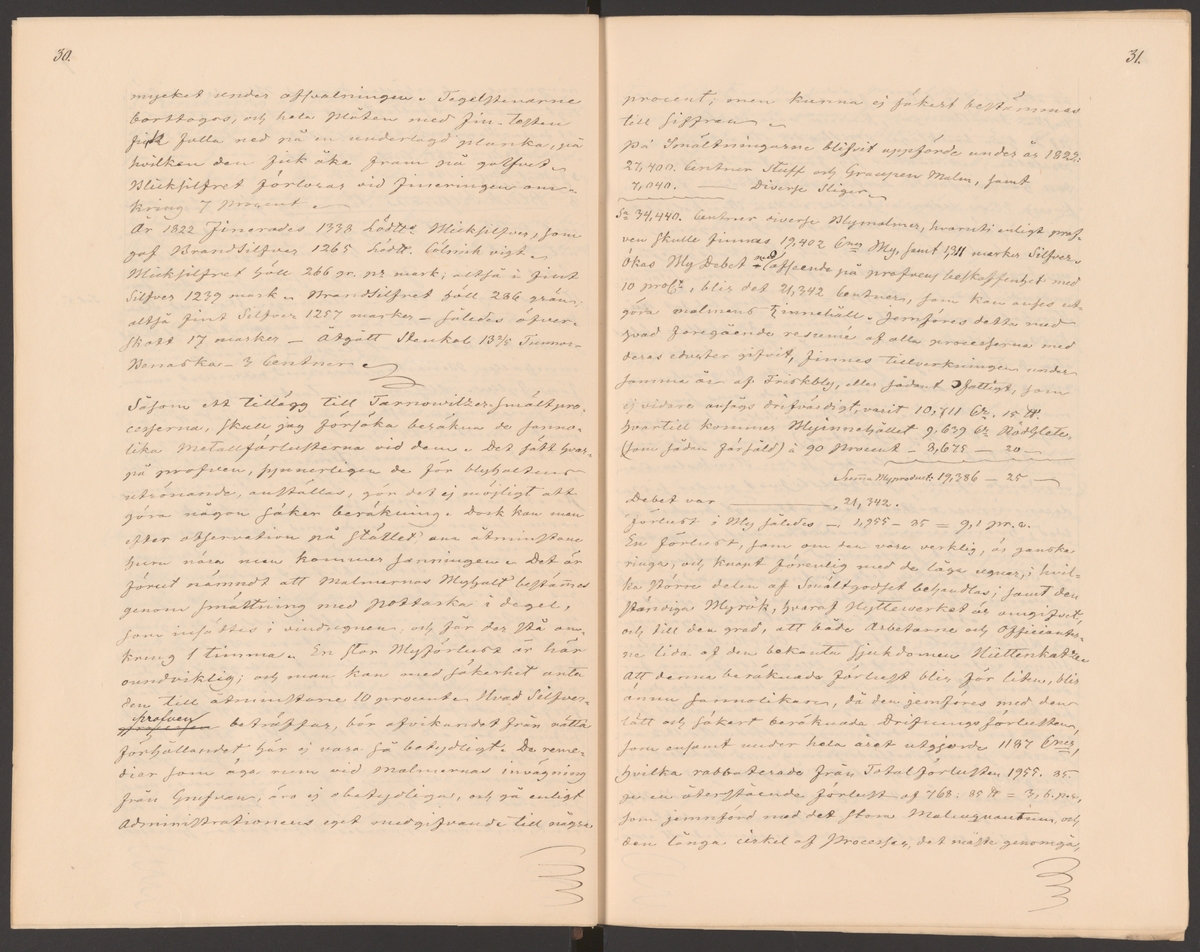 30.
mycket under afsvalningen. Tegelstenarne
borttogos, och hela Mäten med Fin-Testen
fick falla ned på en underlagd planka, på
hvilken den fick åka fram på golfvet.
Blicksilfret förloras vid Fineringen om-
kring 7 procent.
År 1822 Finerades 1338 Lödtt. Blicksilfver, som
gaf BrandSilfver 1265 Lödtt. Cölnisk vigt.
Blicksilfret höll 266 gr. pr mark; altså i fint
Silfver 1239 mark. BrandSilfret höll 286 grän;
altså fint Silfver 1257 marker – således öfver-
skott 17 marker – Åtgått Stenkol 13 3/5 Tunnor
Benaska – 3 Centner.
Såsom ett tillägg till Tarnowitzer Smältpro-
cesserna, skall jag försöka beräkna de sanno-
lika Metallförlusterna vid dem. Det sätt hvar-
på profven, synnerligen de för blyhaltens
utrönande, anställas, gör det ej möjligt att
göra någon säker beräkning. Dock kan man
efter observation på stället om åtminstone
huru nära man kommer sanningen. Det är
förut nämndt att Malmernas Blyhalt bestämes
genom smältning med Pottaska i degel,
som insättes i vindugnen, och får der stå om-
kring 1 timma. En stor Blyförlust är här
oundviklig; och man kan med säkerhet anta
den till åtminstone 10 procent. Hvad Silfver-
profven beträffar, bör afvikandet från rätta
förhållandet här ej vara så betydligt. De reme-
dier som äga rum vid Malmernas invägning
från Grufvan, äro ej obetydliga, och gå enligt
Administrationens eget medgifvande till några
31.
procent; men kunna ej säkert bestämmas
till siffran.
På Smältningarne blifvit uppförde under år 1822:
27,400. Centner Stuff och Graupen Malm, samt
7,040. — Diverse Sliger.
Sa 34,440. Centner diverse Blymalmer, hvaruti enligt prof-
ven skulle finnas 19,402 Cner Bly, samt 1,311 marker Silfver.
Ökas Bly Debet med afseende på profvens beskaffenhet med
10 proC., blir det 21,342 Centner, som kan anses ut-
göra malmens Innehåll. Jemföres detta med
hvad föregående resumé af alla processerna med
deras educter gifvit, finnes tillverkningen under
samma år af Friskbly, eller sådant fattigt, som
ej vidare ansågs drifvärdigt, varit 10,711 Cr. 15 tt.
hvartill kommer Blyinnehållet 9,639 Cr Rödglete,
(som sådan försåld) à 90 Procent – 8,675 – 20 —
Summa Blyproduct: 19,386 – 25 —
Debet var — 21,342.
Förlust i Bly således – 1,955 – 85 = 9,1 pr. c.
En förlust, som om den vore verklig, är ganska
ringa, och knapt förenlig med de låga ugnar, i hvil-
ka större delen af Smältgodset behandlas; samt den
ständiga Blyrök, hvaraf Hyttewerket är omgifvet,
och till den grad, att både Arbetarne och Officiante-
ne lida af den bekanta sjukdomen Hüttenkatze.
Att denna beräknade förlust blir för liten, blir
ännu sannolikare, då den jemföres med den
lätt och säkert beräknade Drifnings förlusten,
som ensamt under hela året utgjorde 1187 Cner,
hvilka rabbaterade från Totalförlusten 1955. 85
ge en återstående förlust af 768. 85 tt = 3,6. pr,
som jemnförd med det stora Malmquantum, och
den långa cirkel af Processer, det måste genomgå,